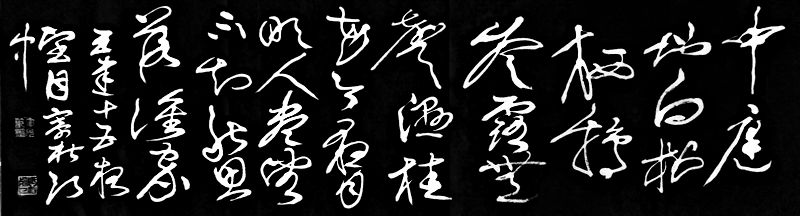 中庭
地白樹
栖鴉
冷露無
聲濕桂
花今夜月
明人盡望
不知秋思
落誰家
王建十五夜
望月寄杜郎
中